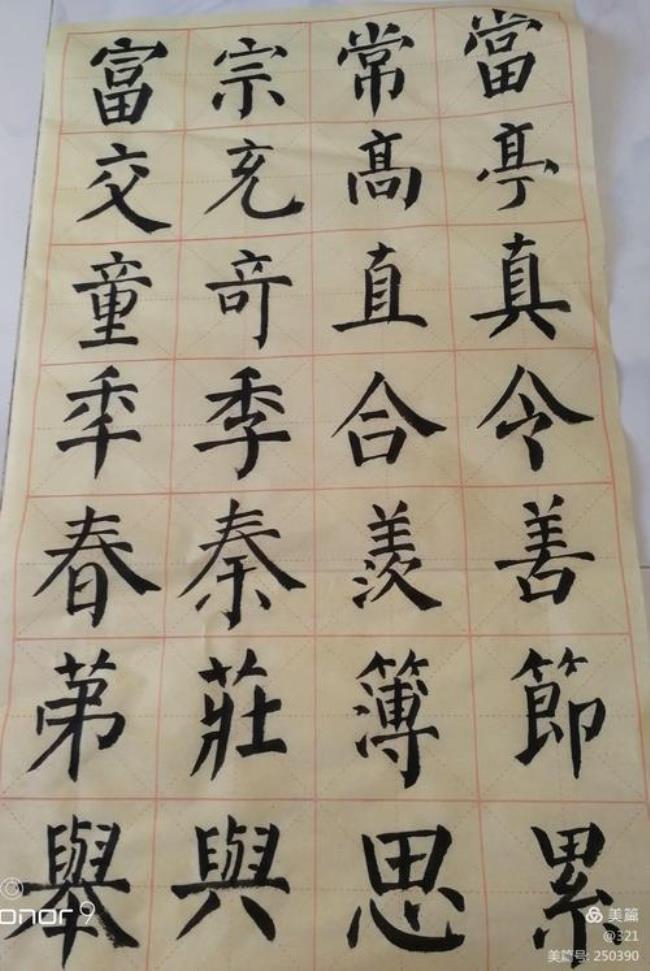 富宗常當
交充髙亭
童竒直真
秊季合令
春秦羨善
苐莊簿節
舉與思累
onor 9
美篇
@321
美篇号: 250390